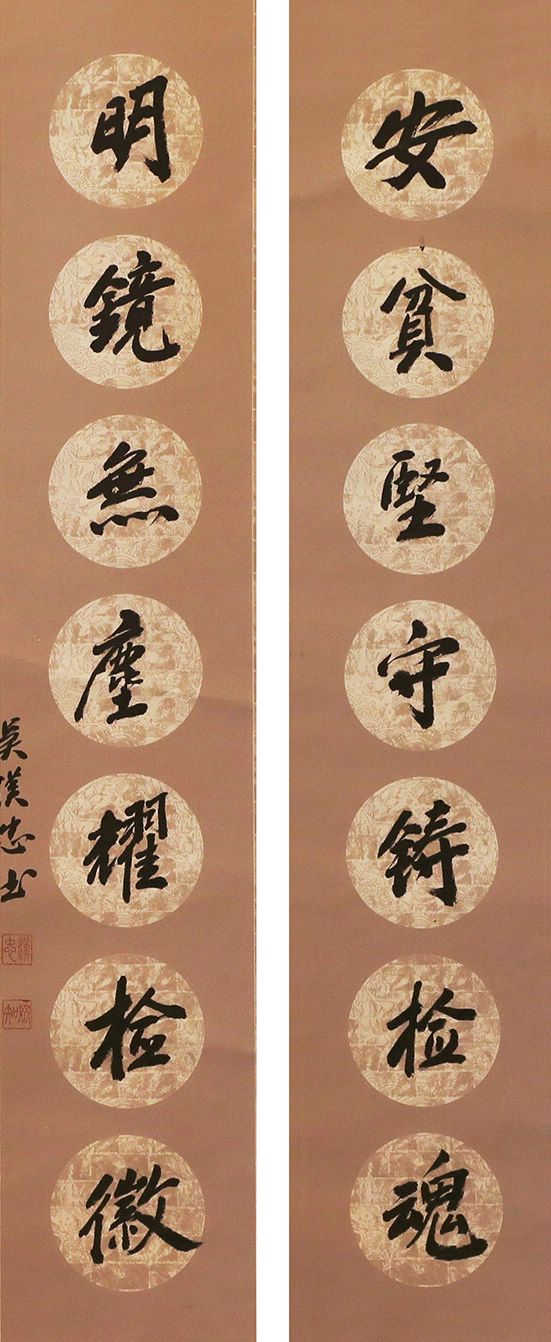 安贫坚守铸检魂
明鏡無塵耀检徽
吴漢忠书